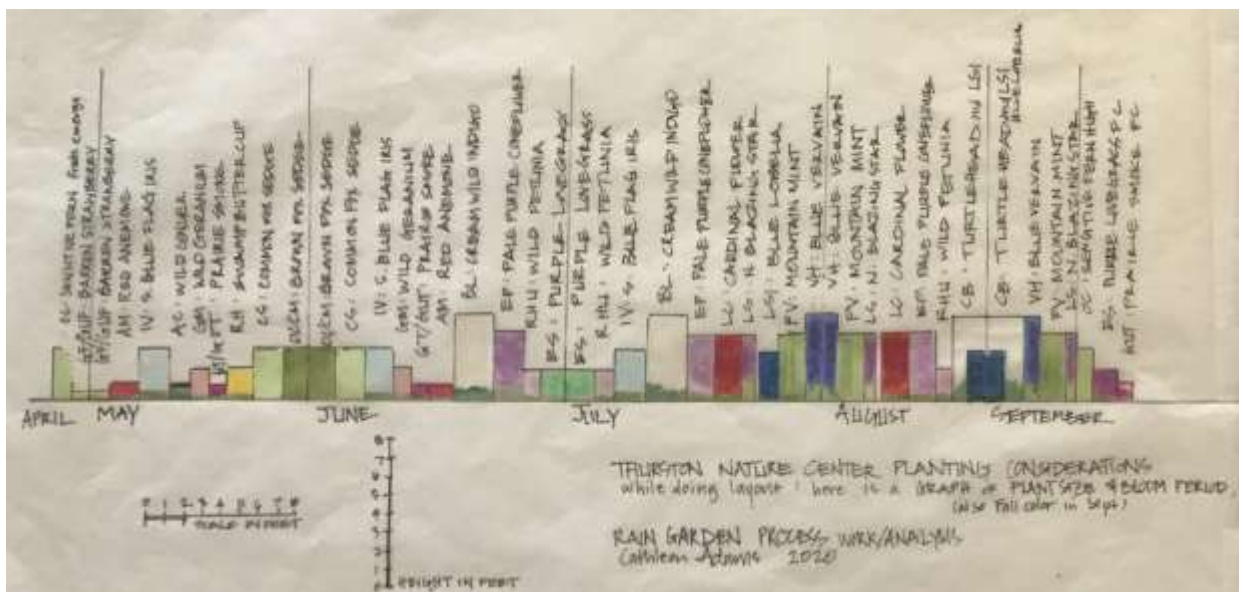 AM: RED ANEMONE
IV: S. BLUE FLAG IRIS
AC: WILD
GM: WILD GERANIUM
PRARIE SMOKE
RH: SWAMP BUTTERCUP
CG: COMMON FOX SEDGE
BROWN FOX SEDGE
BROWN FOX SEDGE
CG: COMMON FOX SEDGE
IV: S. BLUE FLAG IRIS
GM: WILD GERANIUM
PRAIRIE SMOKE
AM: RED ANEMONE
BL: CREAM WILD INDIGO
EP: PALE PURPLE CONEFLOWER
RHU: WILD PETUNIA
ES: PURPLE LOVEGRASS
ES: PURPLE LOVEGRASS
RHU: WILD PETUNIA
IV: S. BLUE FLAG IRIS
BL: CREAM WILD INDIGO
EP: PALE PURPLE CONEFLOWER
LC: CARDINAL FLOWER
LS: N. BLAZING STAR
LSI: BLUE LOBELIA
PV: MOUNTAIN MINT
VH: BLUE VERVAIN
VH: BLUE VERVAIN
PV: MOUNTAIN MINT
LS: N. BLAZING STAR
LC: CARDINAL FLOWER
EP: PALE PURPLE CONEFLOWER
RHU: WILD PETUNIA
CB: TURTLEHEAD LSI
CB: TURTLEHEAD LSI
BLUE LOBELIA
VH: BLUE VERVAIN
PV: MOUNTAIN MINT
LS: N. BLAZING STAR
ES: PURPLE LOVEGRASS FC
PRAIRIE SMOKE FC
APRIL MAY JUNE JULY AUGUST SEPTEMBER
0 1 2 3 4 5 6 7 8
SCALE IN FEET
8
7
6
5
4
3
2
1
HEIGHT IN FEET
THURSTON NATURE CENTER PLANTING CONSIDERATIONS
while doing layout: here is a GRAPH OF PLANT SIZE & BLOOM PERIOD,
(also Fall color in Sept)
RAIN GARDEN PROCESS WORK/ANALYSIS
Cathleen Adams 2020